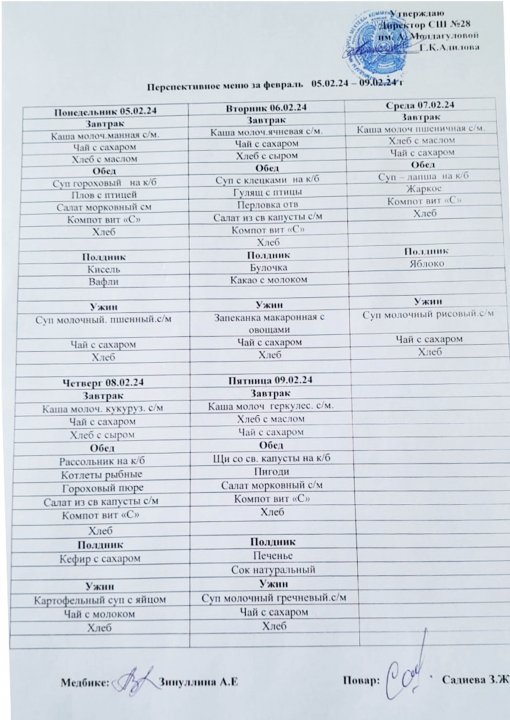 Утверждаю
Директор СШ №28
им. А. Молдагуловой
Г.К.Адилова
Перспективное меню за февраль 05.02.24 – 09.02.24 г
Понедельник 05.02.24 Вторник 06.02.24 Среда 07.02.24
Завтрак Завтрак Завтрак
Каша молоч.манная с/м. Каша молоч.ячневая с/м. Каша молоч пшеничная с/м.
Чай с сахаром Чай с сахаром Хлеб с маслом
Хлеб с маслом Хлеб с сыром Чай с сахаром
Обед Обед Обед
Суп гороховый на к/б Суп с клецками на к/б Суп – лапша на к/б
Плов с птицей Гулящ с птицы Жаркое
Салат морковный см Перловка отв Компот вит «С»
Компот вит «С» Салат из св капусты с/м Хлеб
Хлеб Компот вит «С»
Хлеб
Полдник Полдник Полдник
Кисель Булочка Яблоко
Вафли Какао с молоком
Ужин Ужин Ужин
Суп молочный. пшенный.с/м Запеканка макаронная с Суп молочный рисовый.с/м
овощами
Чай с сахаром Чай с сахаром Чай с сахаром
Хлеб Хлеб Хлеб
Четверг 08.02.24 Пятница 09.02.24
Завтрак Завтрак
Каша молоч. кукуруз. с/м Каша молоч геркулес. с/м.
Чай с сахаром Хлеб с маслом
Хлеб с сыром Чай с сахаром
Обед Обед
Рассольник на к/б Щи со св. капусты на к/б
Котлеты рыбные Пигоди
Гороховый пюре Салат морковный с/м
Салат из св капусты с/м Компот вит «С»
Компот вит «С» Хлеб
Хлеб
Полдник Полдник
Кефир с сахаром Печенье
Сок натуральный
Ужин Ужин
Картофельный суп с яйцом Суп молочный гречневый.с/м
Чай с молоком Чай с сахаром
Хлеб Хлеб
Медбике: Зинуллина А.Е Повар: Садиева З.Ж